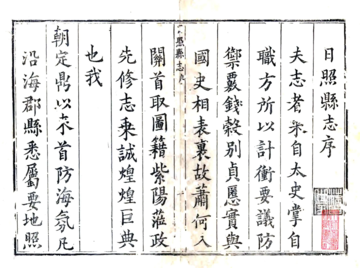 日照縣志序
夫志者采自太史掌自
職方所以計衝要議防
禦覈錢榖别貞慝實與
國史相表裏故蕭何入
關首取圖籍紫陽蒞政
先修志乘誠煌煌巨典
也我
朝定鼎以來首防海氛凡
沿海郡縣悉屬要地照